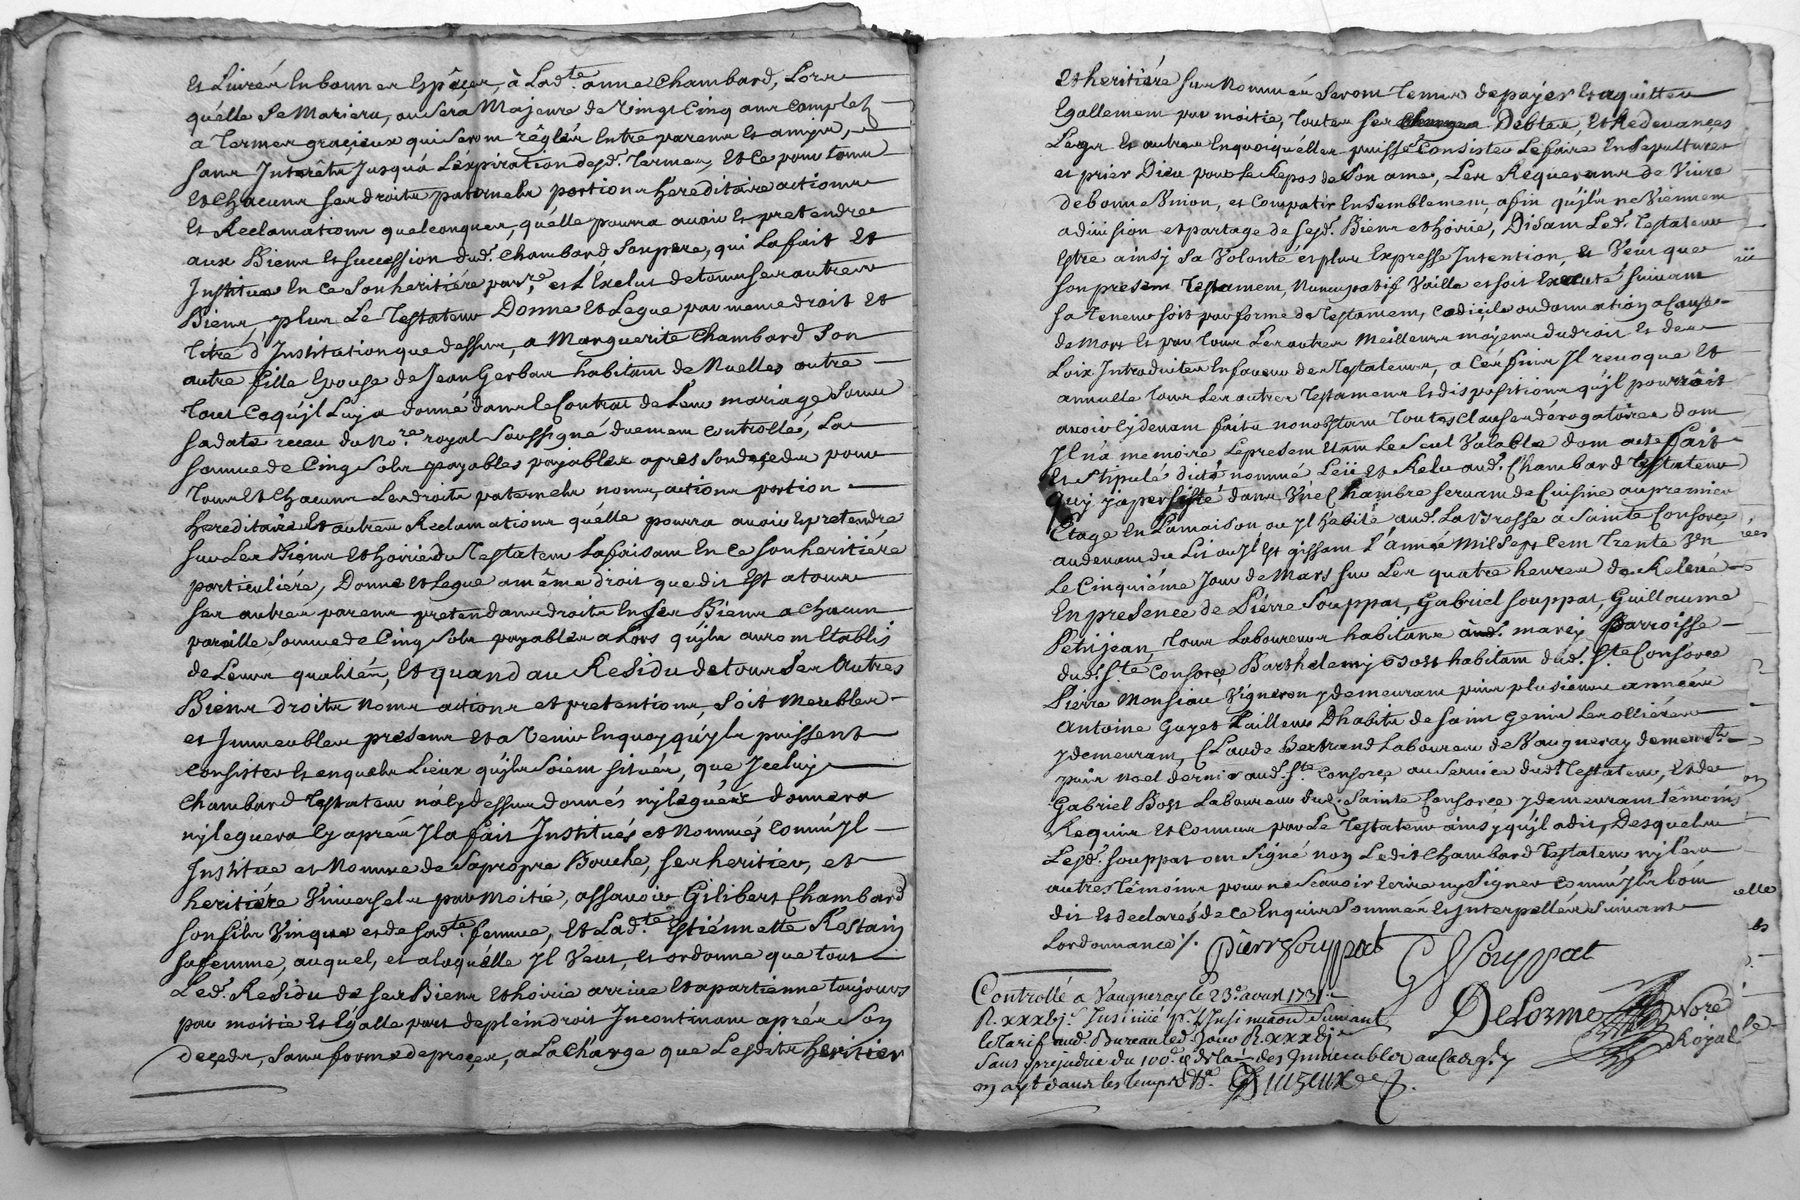 Et Livréz En bonnes Espêçes, à Lad.te anne Chambard, Lors
quélle Se Mariera, ou Sera Majeure de Vingt Cinq ans Complets
a Termes gracieux qui Seront régléz Entre parens Et amys,
sans Interêts Jusquá L'expiration desd. Termes, Et Ce pour tous
Et Chacuns Ses droits paternels portions hereditaire actions
Et Reclamations quelconques, quélle pourra avoir Et pretendre
aux Biens Et succession dud. Chambard Son pere, qui La fait Et
Institue En Ce Son heritiére par.re, et L'Exclut de tous Ses autres
Biens, plus Le Testateur Donne Et Legue par meme droit Et
Titre d'Institution que dessus, a Marguerite Chambard Son
autre fille Epouse de Jean Gerbau habitant de Nuelles outre
Tout Ce qu'jl Luy a donné dans le Contrat de Leur mariage Sous
sa date receu du No.re royal Soussigné duement Controllé, La
somme de Cinq Sols payables payables apres Son deçeds pour
Tous Et Chacuns Les droits paternels noms, actions portion
hereditaire Et autres Reclamations quélle pourra avoir Et pretendre
sur Les Biens Et hoirie du Testateur La faisant En Ce Son heritiére
particuliére, Donne Et Legue a même droit que dit Est a tous
Ses autres parens pretendans droits En Ses Biens a Chacun
pareille Somme de Cinq Sols payables a Lors qu'jls auront Etablis
de Leurs qualités, Et quand au Residu de tous Ses Autres
Biens droits Noms actions et pretentions, Soit Meubles
et Immeubles présens Et a Venir En quoy qu'jls puissent
Consister Et en quels Lieux qu'jls Soient situés, que Jceluy
Chambard Testateur n'a Cy dessus donnés ny leguéz donnera
ny leguera Cy aprés Jl a fait Institués et Nommés Comm'Jl
Institue et Nomme de Sa propre Bouche, Ses heritier, et
heritiére Universels par Moitié, assavoir Gilibert Chambard
Son fils et de Sad.te femme, Et Lad.te Estiénnette Restain
Sa femme, auquel, et a laquélle Jl Veut, Et ordonne que tout
Led. Residu de Ses Biens Et hoirie arrive Et apartienne toujours
par moitié Et Egalle part de plein droit Incontinant aprés Son
deçeds, Sans forme de proçes, a La Charge que Lesdits Heritier
Et heritiére Sus Nommés Seront Tenus de payer Et aquitter
Egallement par moitié, toutes Ses Debtes, Et Redevançes
Legs Et autres En quoi qu'élles puisse Consister Le faire Ensepulturer
et prier Dieu pour le Repos de Son ame, Les Requerans de Vivre
de bonne Vnion, et Compatir Ensemblement, afin qu'jls ne Viennent
a division et partage de Sesd. Biens et hoirie, Disant Led. Testateur
Estre ainsj Sa Volonté et plus Expresse Intention, Et Veut que
Son present Testament, Nuncupatif Vaille et soit Executé Suivant
Sa Teneur Soit par forme de Testament, Codiçile ou donnation a Cause
de Mort Et par tous Les autres Meilleurs moyens du droit Et des
Loix Introduites En faveur des Testateurs, a Ces fins Jl revoque Et
annulle tous Les autres Testamens Et dispositions qu'jl pourroit
avoir Cy devant faits nonobstant Toutes Clauses dérogatoires dont
Jl n'a mémoire Le present Etant Le Seul Valable dont acte Fait
Et Stipulé dicté nommé Leü et Relu aud. Chambard Testateur
qui y a persisté dans Vne Chambre Servant de Cuisine au premier
Etage En La maison ou Jl habite aud. La Brosse a Sainte Consorce
au devant du Lit ou Jl Est gissant L'année Mil Sept Cent Trente Un
Le Cinquiéme Jour de Mars Sur Les quatre heures de Relevé
En presence de Pierre Souppat, Gabriel Souppat, Guillaume
Petitjean, tous Laboureurs habitans aud. marcy Parroisse
dud. S.te Consorce Barthelemy Bost habitant dud. S.te Consorce
Pierre Monsiau Vigneron y demeurant puis plusieurs années
Antoine Guyot Tailleur D'habits de Saint Genis Les ollières
y demeurant, Claude Bertrand Laboureur de Vaugneray demeurt.
puis noel dernier aud. S.te Consorce au Service dud. Testateur, Et de
Gabriel Bost Laboureur dud. Sainte Consorce y demeurant témoins
Requis Et Connus par Le Testateur ainsy qu'jl a dit, Desquels
Lesd. Souppat ont Signé non Ledit Chambard Testateur ny Les
autres Témoins pour ne Scavoir Ecrire ny Signer Comm'Jls L'ont
dit Et declaréz de ce Enquis Sommés Et Interpellés Suivant
L'ordonnance ./.
pierre Souppat
G Souppat
Controllé a Vaugneray le 23.e avril 1731.
R. xxxbj.s Insinué p.r L'Insinuaon Suivant
le Tarif aud. Bureau led. Jour R. xxxbj.s
Sans préjudice du 100.e d. des Immeubles
Delorme
No.re
Royal